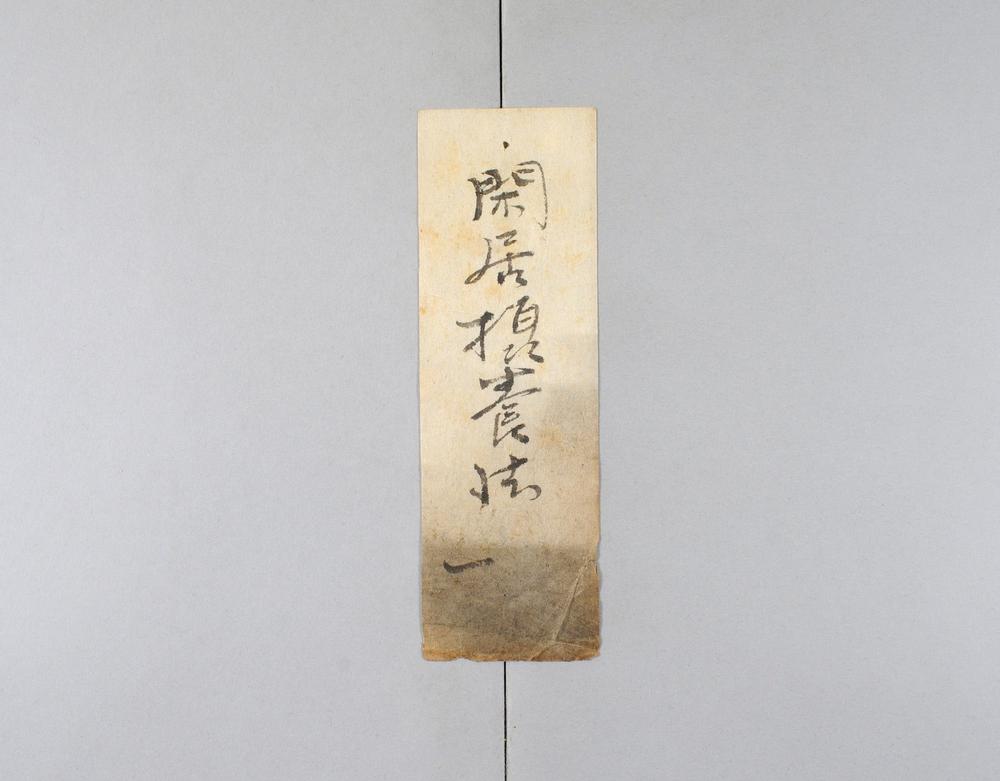 閑居攝養法
一